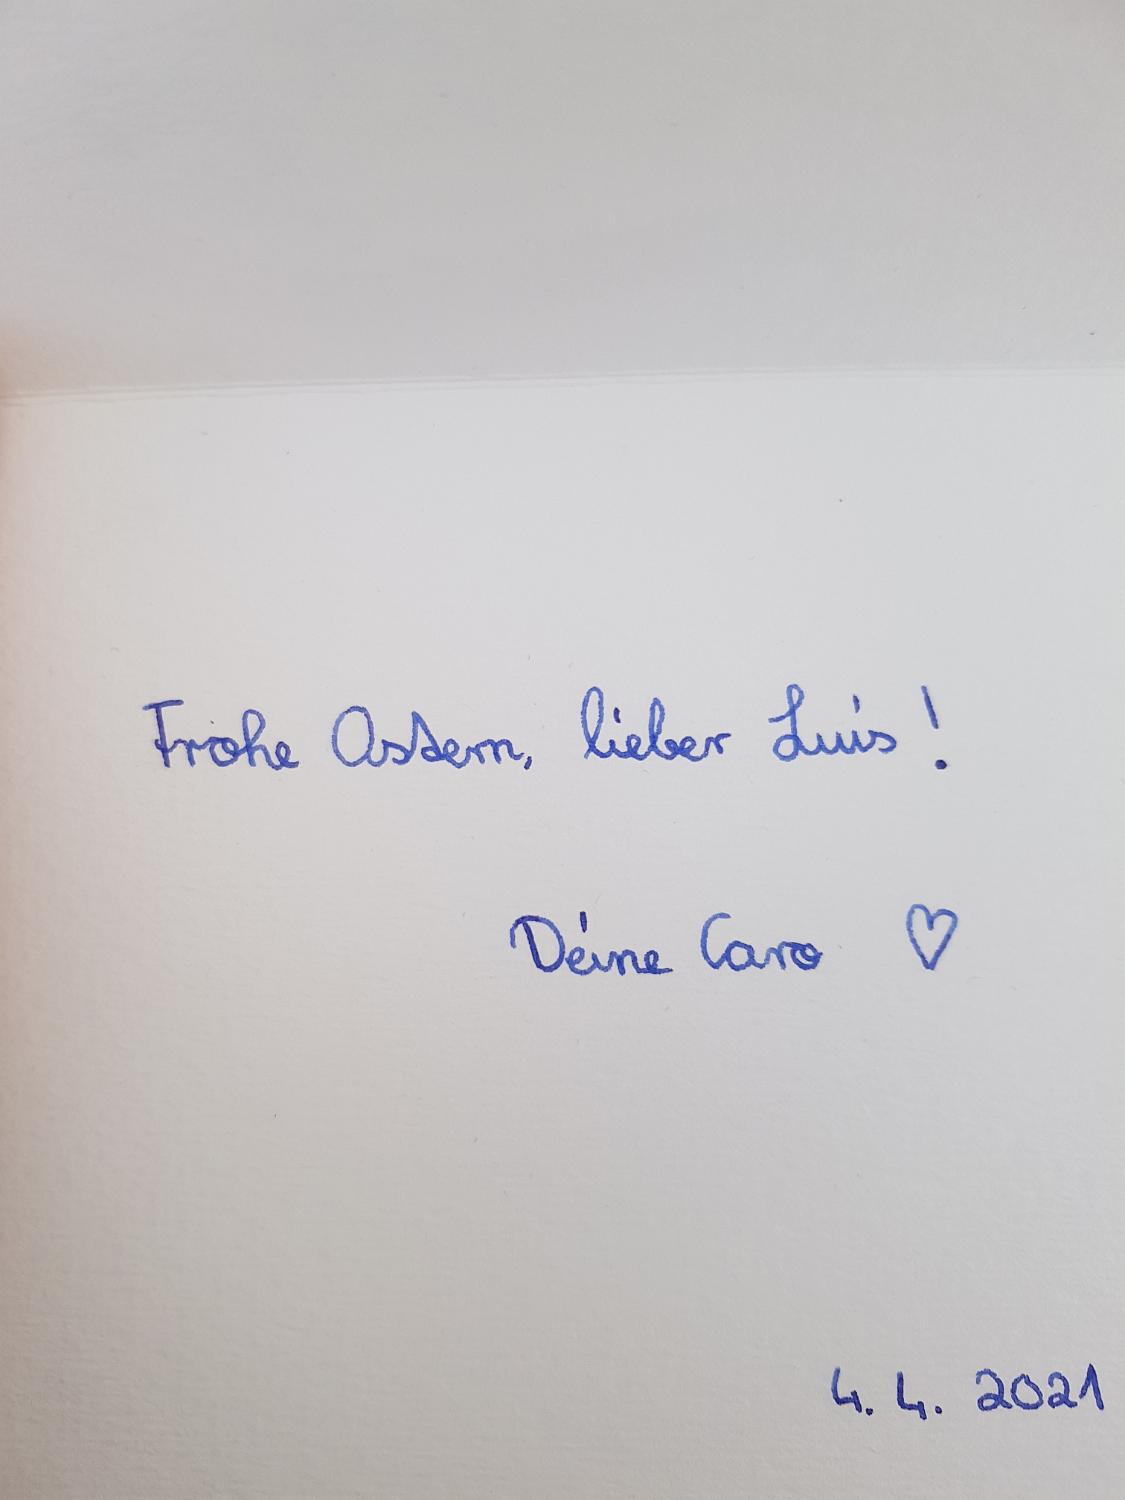 Frohe Ostern, lieber Luis!
Deine Caro ♡
4. 4. 2021